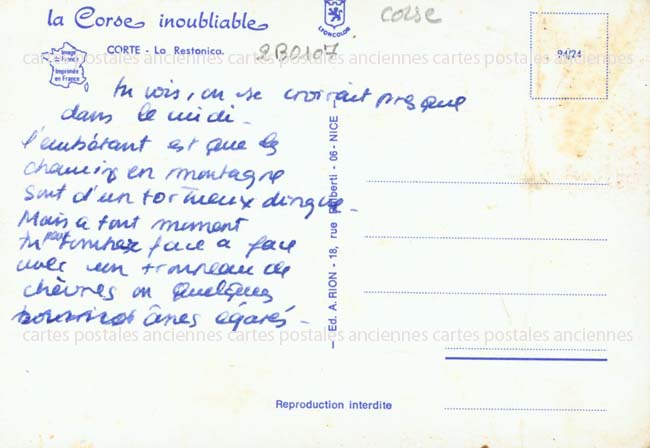 la Corse inoubliable
CORTE - La Restonica.
LYONCOLOR
corse
2B0107
Image de France
Imprimée en France
94/24
tu vois, on se croirait presque
dans le midi -
l'embêtant est que les
chemins en montagne
sont d'un tortueux dingue -
Mais a tout moment
tu peux tomber face a face
avec un troupeau de
chèvres ou quelques
ânes égarés -
— Ed. A. RION - 18, rue 06 - NICE
cartes postales anciennes cartes postales anciennes cartes postales anciennes
cartes postales anciennes cartes postales anciennes cartes postales anciennes
Reproduction interdite